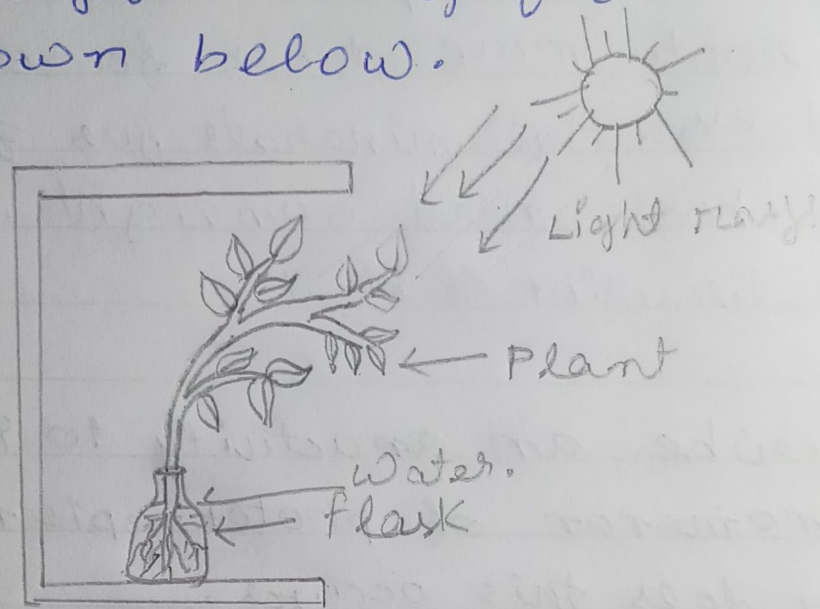 own below.
Light rays
Plant
Water.
flask